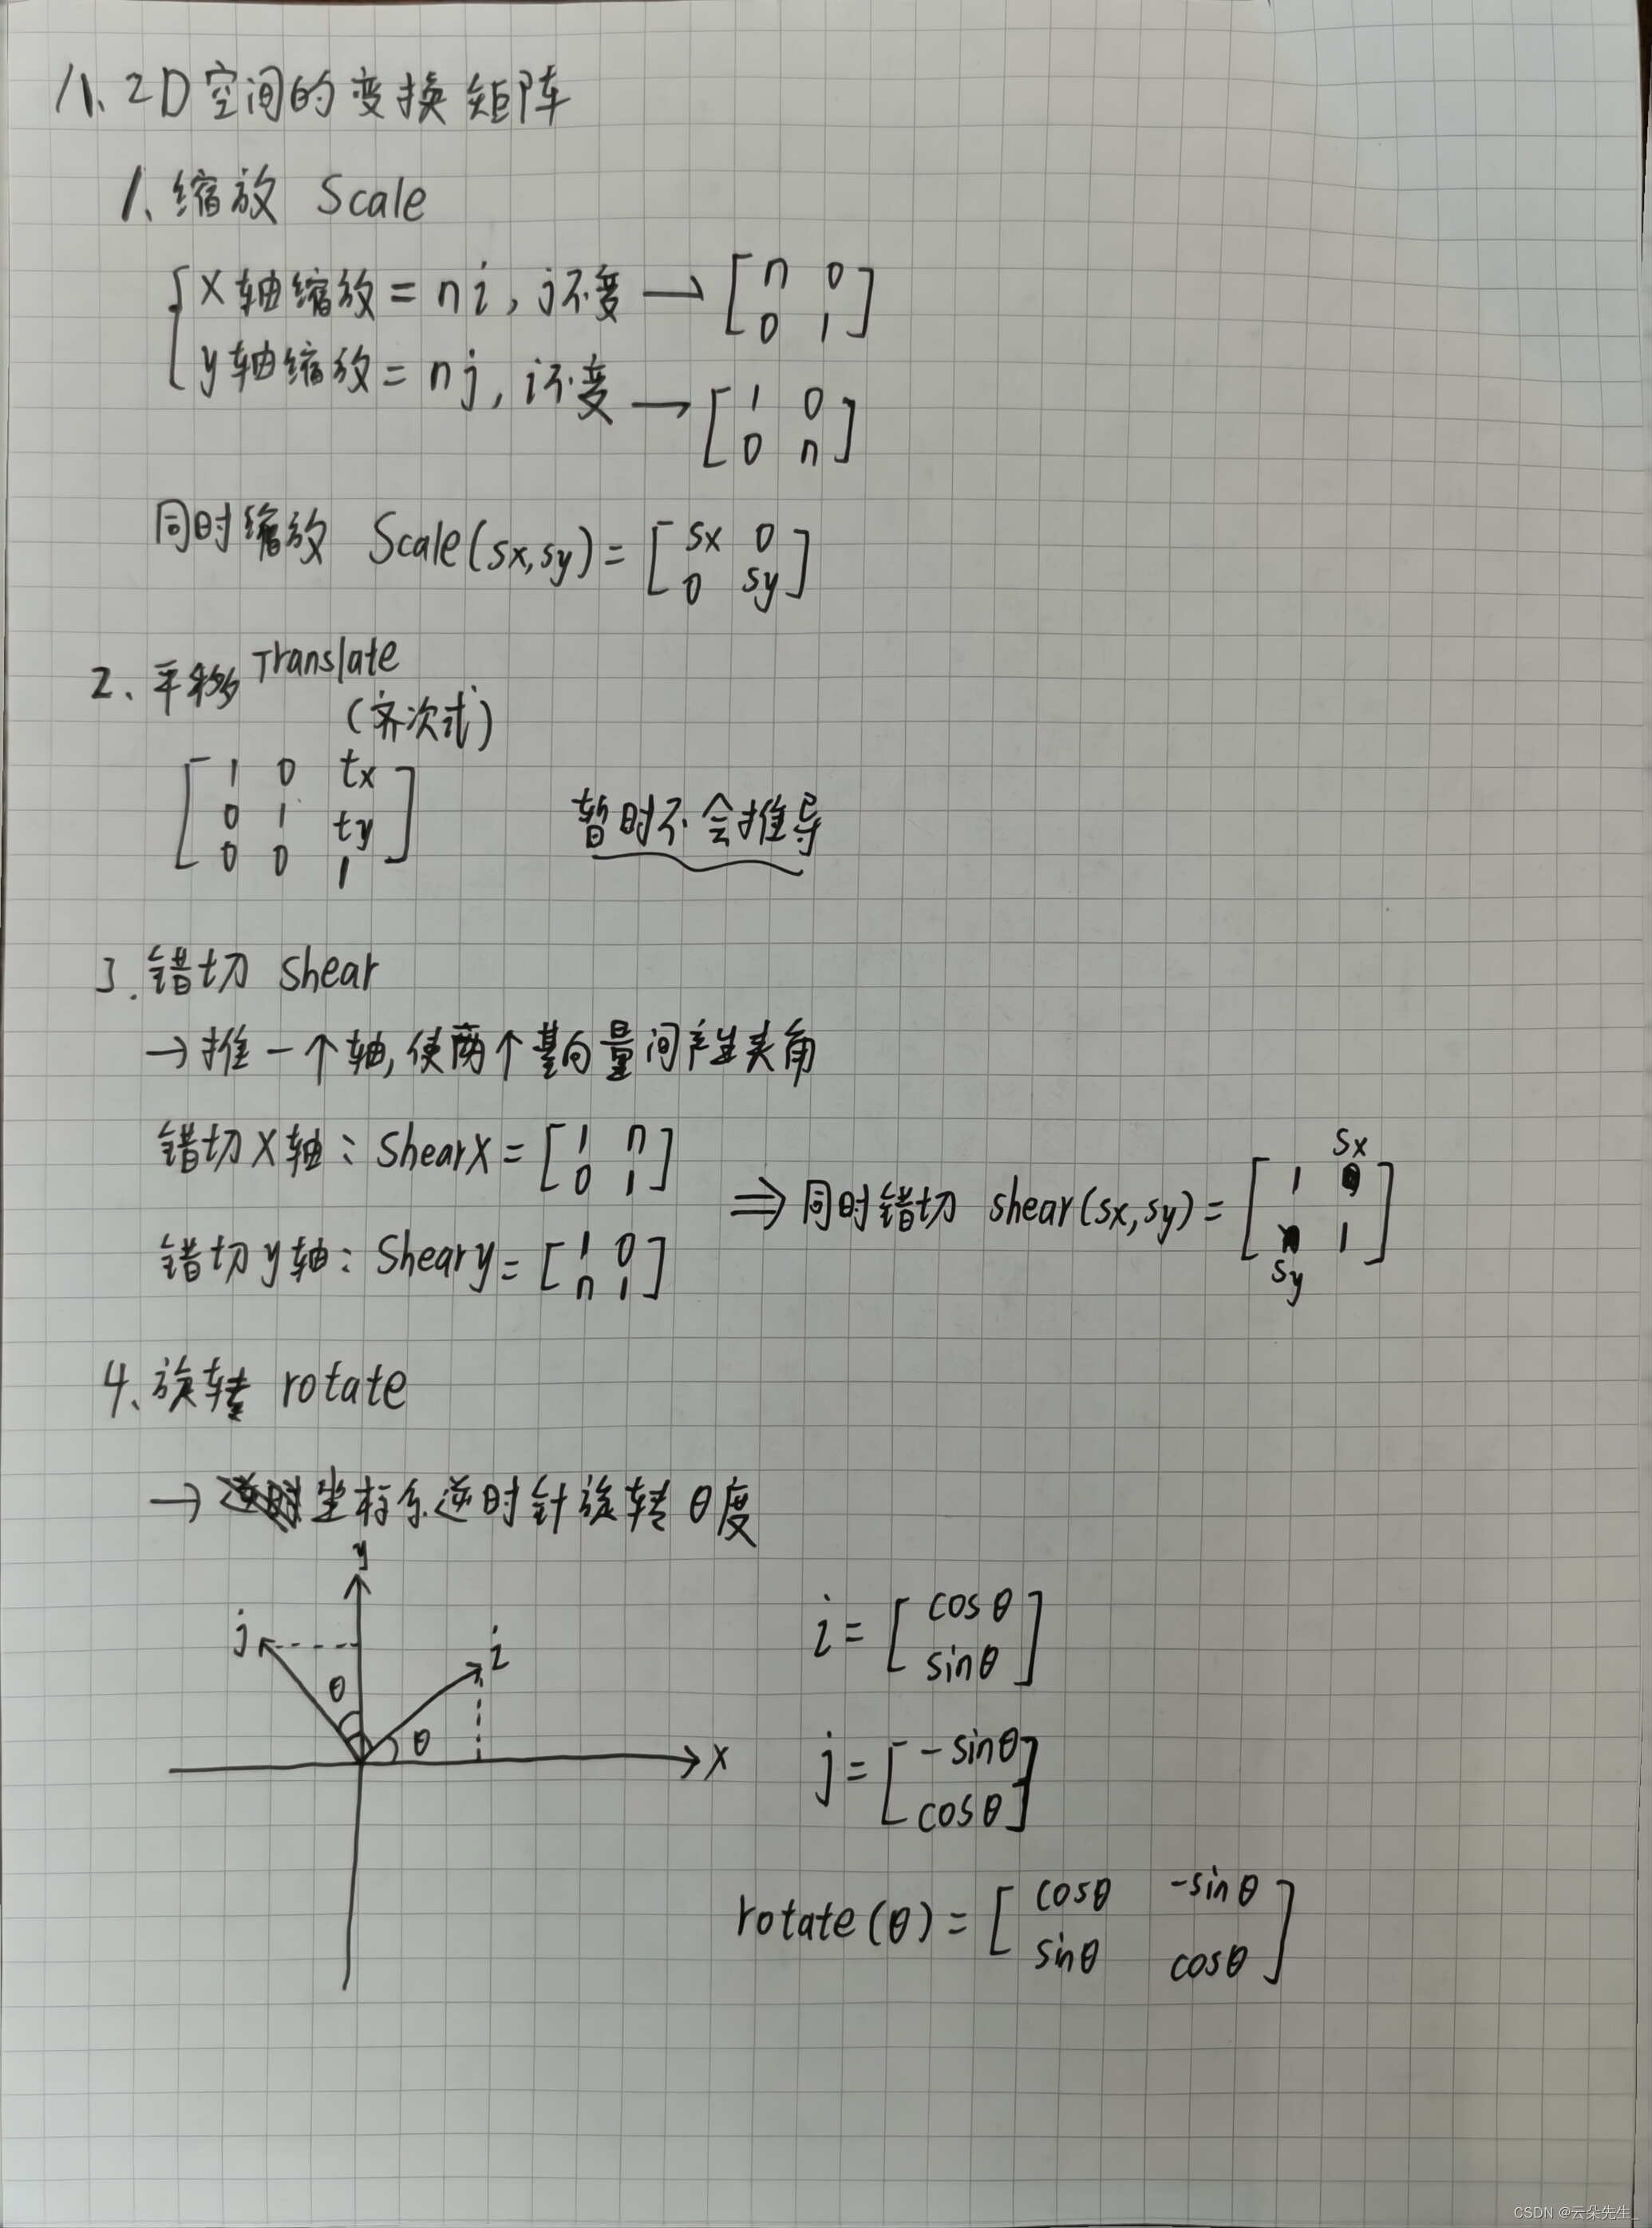 八、2D空间的变换矩阵
1、缩放 Scale
x轴缩放 = ni, j不变 → [n 0
0 1]
y轴缩放 = nj, i不变 → [1 0
0 n]
同时缩放 Scale(sx,sy) = [sx 0
0 sy]
2、平移 Translate
(齐次式)
[1 0 tx
0 1 ty
0 0 1]
暂时不会推导
3.错切 shear
→推一个轴,使两个基向量间产生夹角
错切X轴: ShearX = [1 n
0 1]
错切y轴: Sheary = [1 0
n 1]
⇒ 同时错切 shear(sx,sy) = [1 sx
sy 1]
4、旋转 rotate
→ 坐标系逆时针旋转θ度
y
j
i
θ
θ
x
i = [cosθ
sinθ]
j = [-sinθ
cosθ]
rotate(θ) = [cosθ -sinθ
sinθ cosθ]
CSDN @云朵先生_